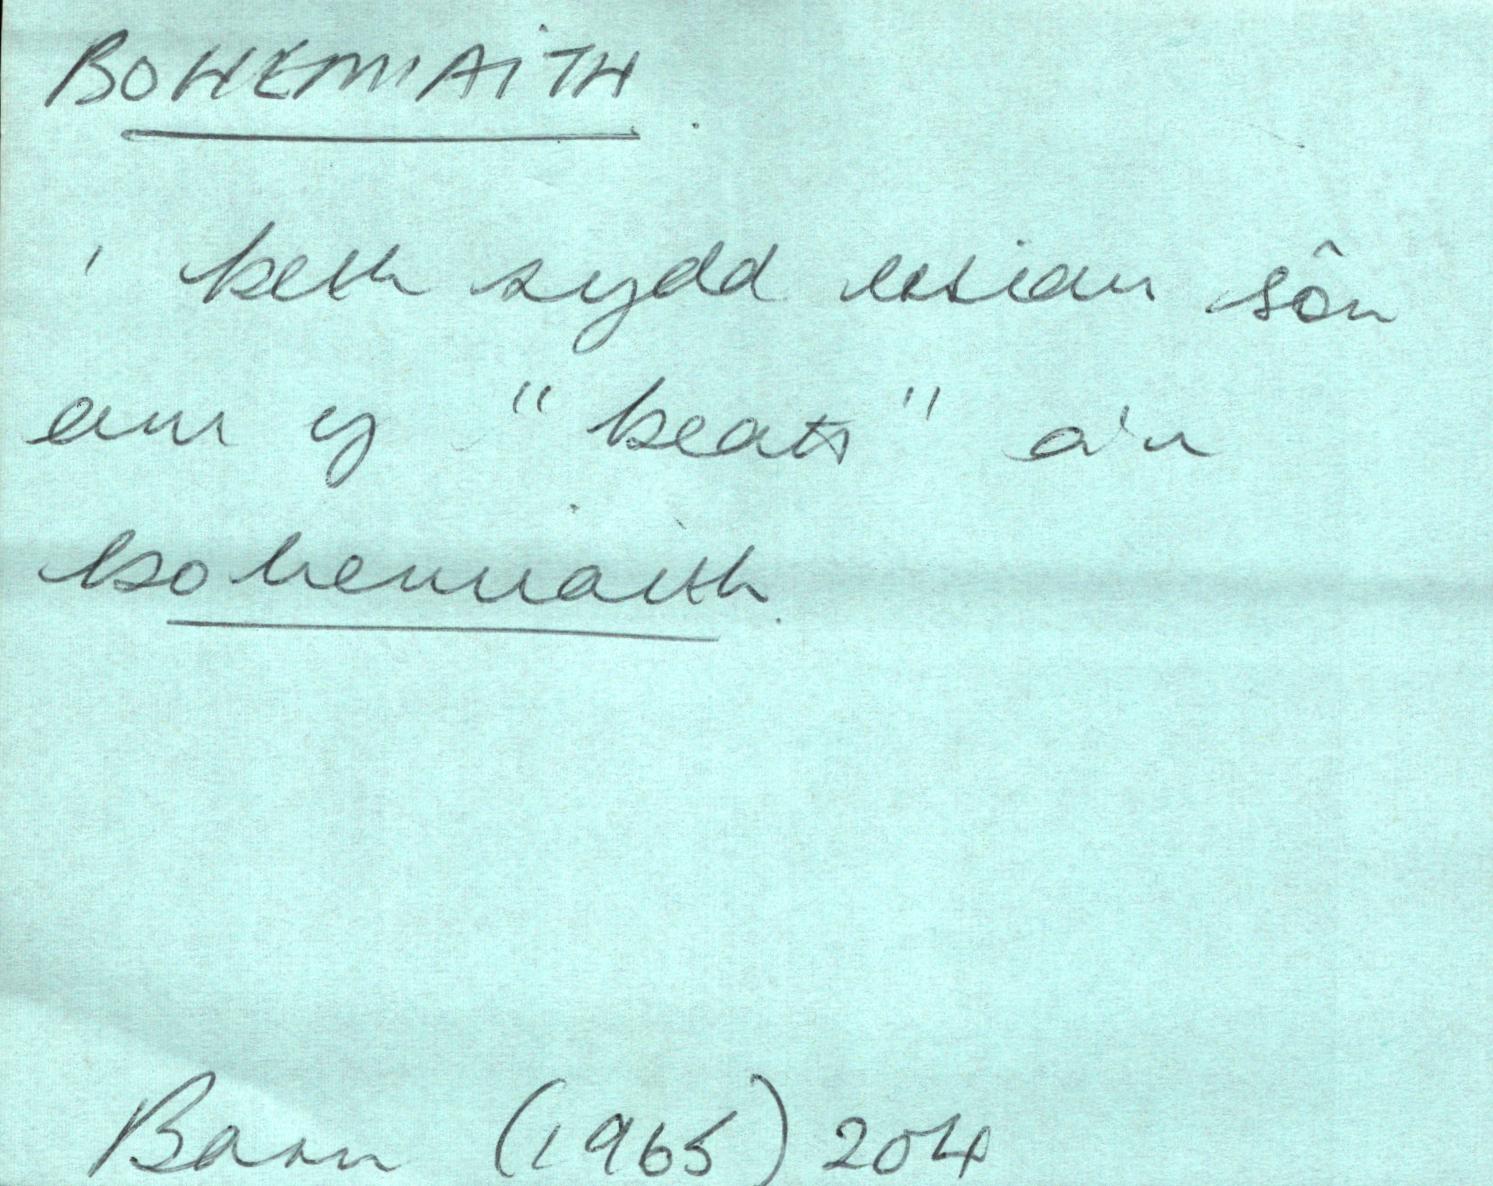 BOHEMIAITH.
' beth sydd eisiau sôn
am y "beats" a'u
bohemiaith.
Barn (1965) 204